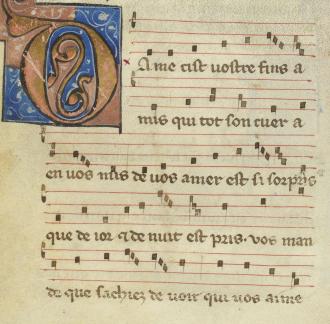 Dame cist vostre fins a
mis qui tot son cuer a
en vos mis de vos amer est si sorpris
que de ior ⁊ de nuit est pris. vos man
de que sachiez de voir qui vos aime